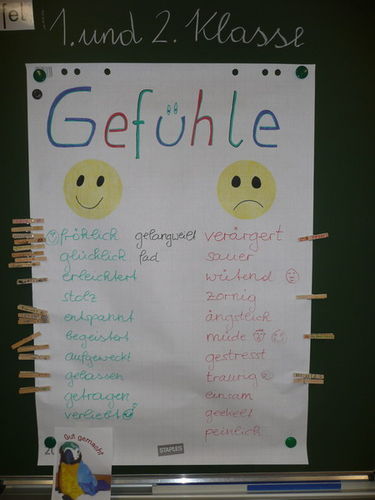 fel
1. und 2. Klasse
Gefühle
fröhlich gelangweilt verärgert
glücklich fad sauer
erleichtert wütend
stolz zornig
entspannt ängstlich
begeistert müde
aufgeweckt gestresst
gelassen traurig
getragen einsam
verliebt geekelt
peinlich
Gut gemacht
STAPLES